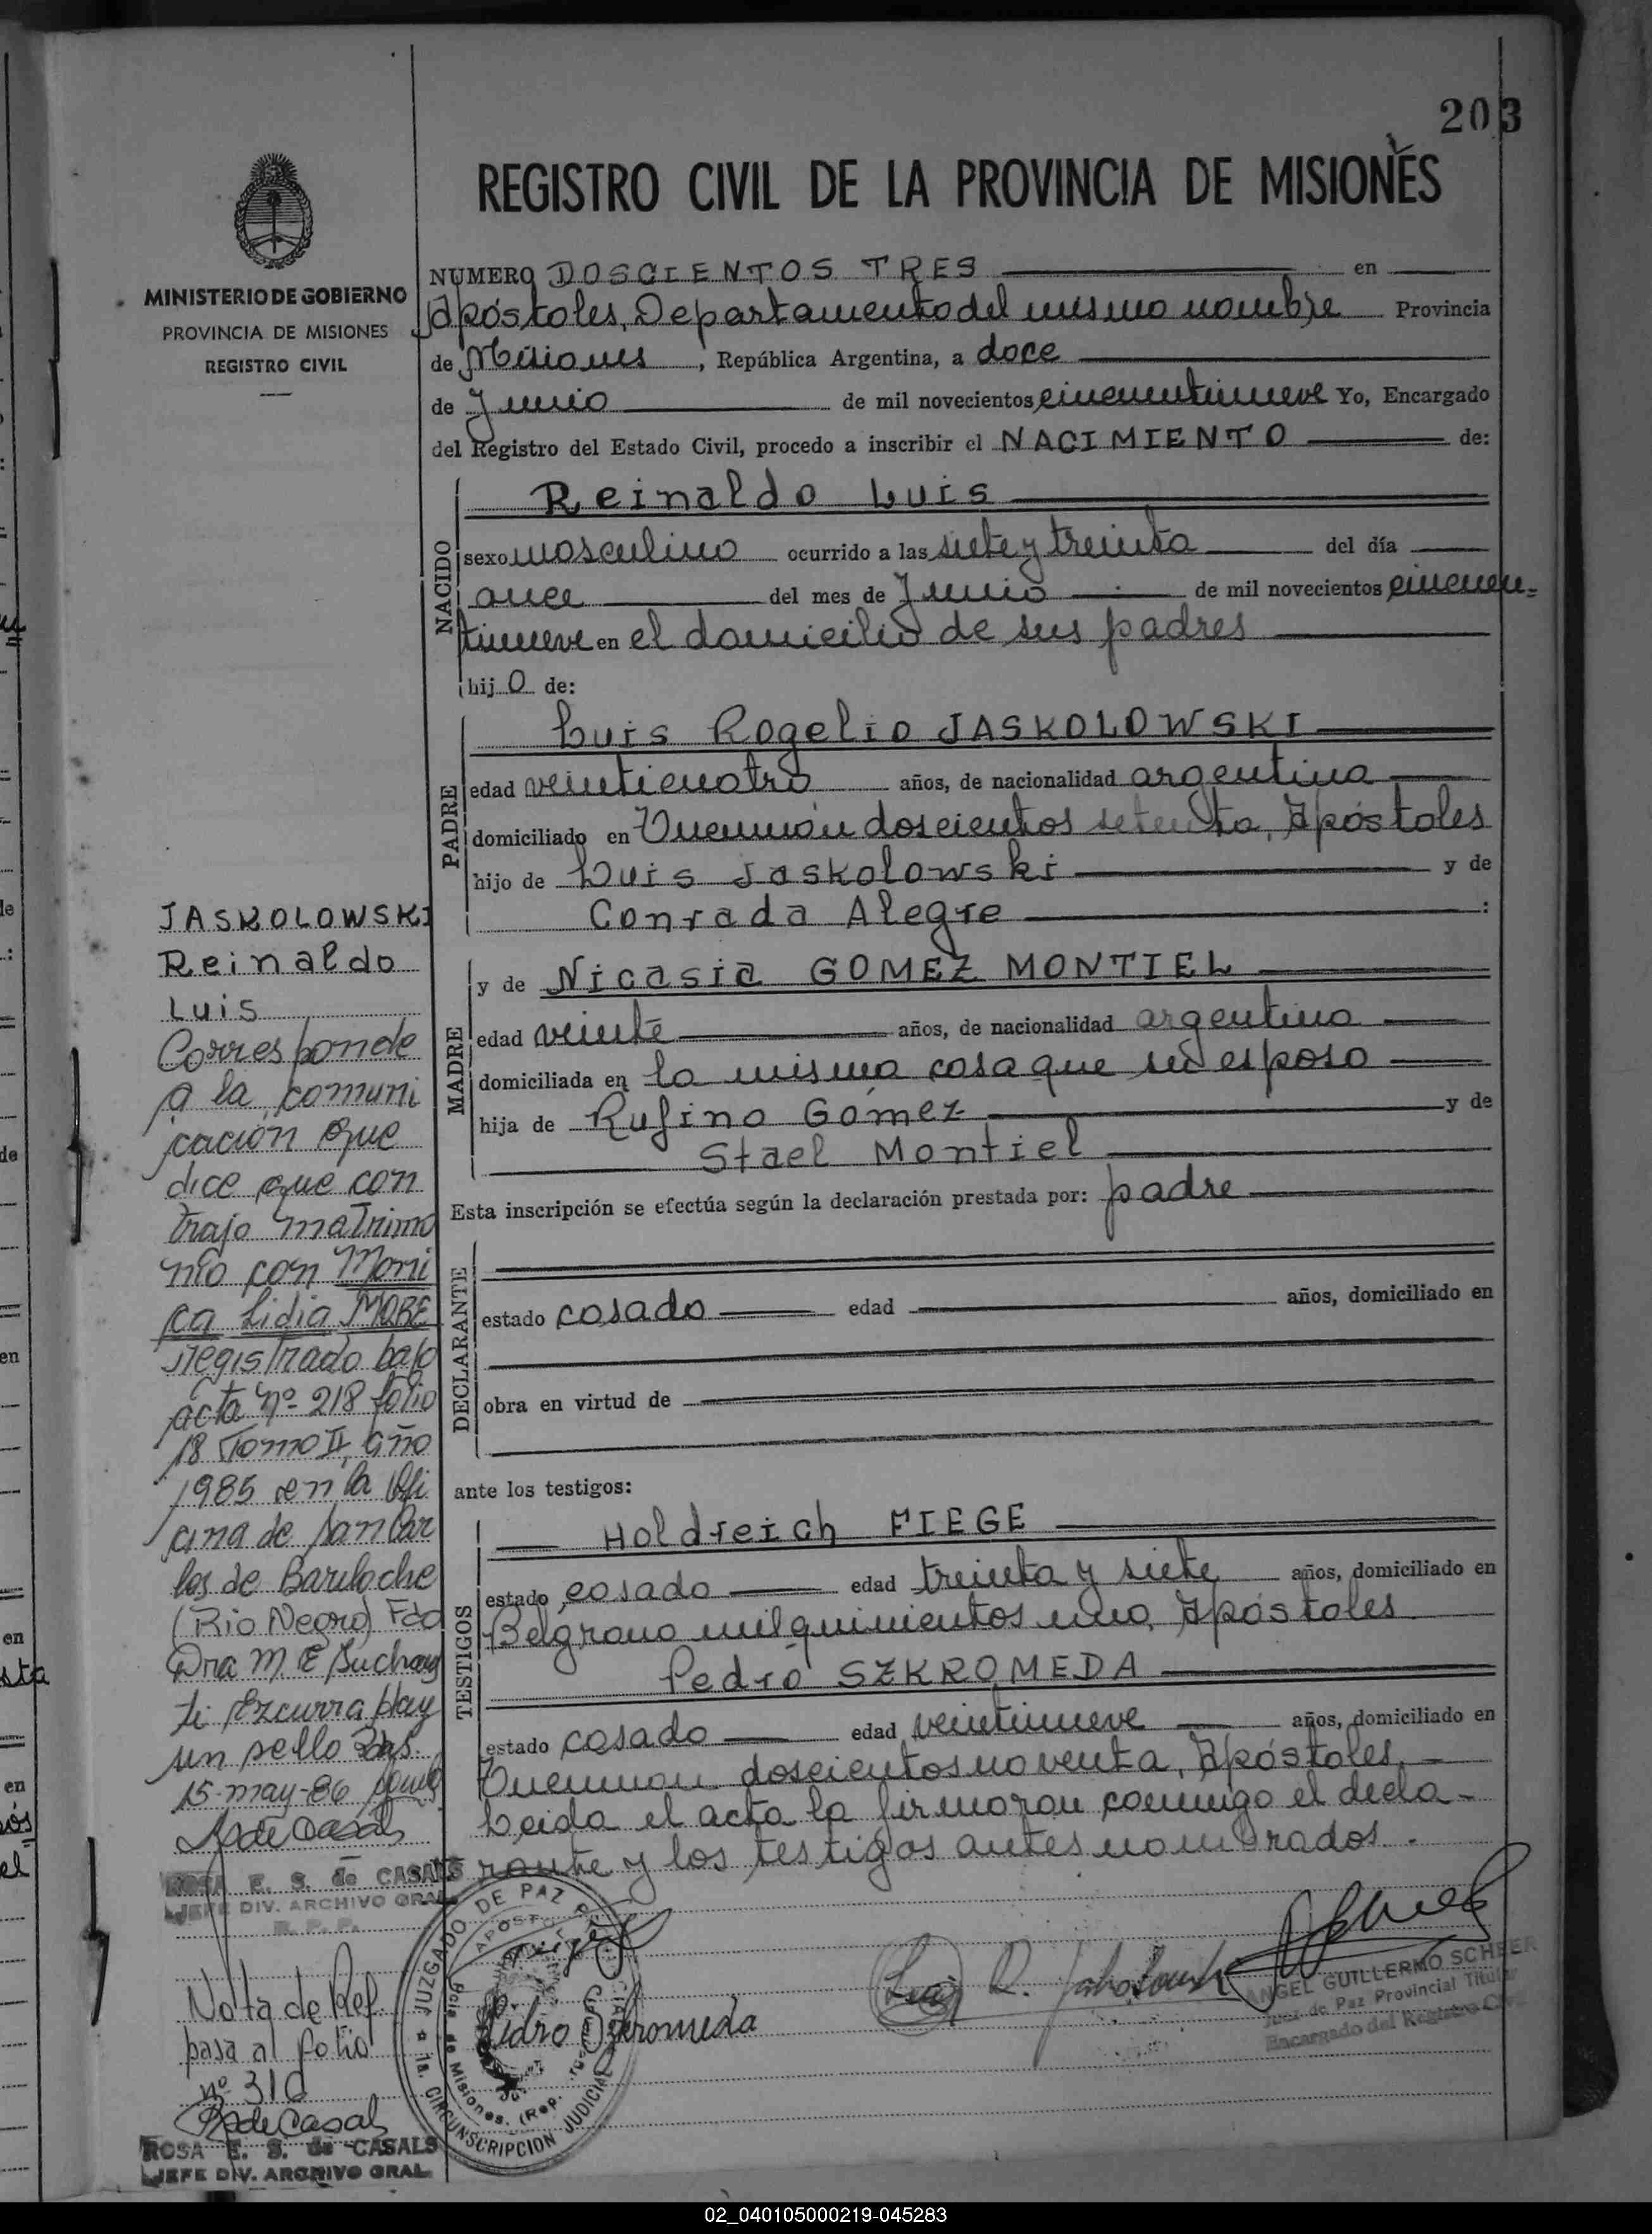 203
REGISTRO CIVIL DE LA PROVINCIA DE MISIONES
MINISTERIO DE GOBIERNO
PROVINCIA DE MISIONES
REGISTRO CIVIL
NUMERO DOSCIENTOS TRES en
Apóstoles, Departamento del mismo nombre Provincia
de Misiones, República Argentina, a doce
de Junio de mil novecientos cincuentinueve Yo, Encargado
del Registro del Estado Civil, procedo a inscribir el NACIMIENTO de:
NACIDO
Reinaldo Luis
sexo masculino ocurrido a las siete y treinta del día
once del mes de Junio de mil novecientos cincuen-
tinueve en el domicilio de sus padres
hijo de:
PADRE
Luis Rogelio JASKOLOWSKI
edad veinticuatro años, de nacionalidad argentina
domiciliado en Tucumán doscientos setenta, Apóstoles
hijo de Luis Jaskolowski y de
Conrada Alegre :
MADRE
y de Nicasia GOMEZ MONTIEL
edad veinte años, de nacionalidad argentina
domiciliada en la misma casa que su esposo
hija de Rufino Gómez y de
Stael Montiel
Esta inscripción se efectúa según la declaración prestada por: padre
DECLARANTE
estado casado edad años, domiciliado en
obra en virtud de
ante los testigos:
TESTIGOS
Holdreich FIEGE
estado casado edad treinta y siete años, domiciliado en
Belgrano mil quinientos uno, Apóstoles
Pedro SZKROMEDA
estado casado edad veintinueve años, domiciliado en
Tucumán doscientos noventa, Apóstoles.
Leida el acta la firmaron conmigo el decla-
rante y los testigos antes nombrados.
JASKOLOWSKI
Reinaldo
Luis
Corresponde
a la comuni
cación que
dice que con
trajo matrimo
nio con Moni
ca Lidia MORE
registrado bajo
acta nº 218 folio
18 Tomo II, año
1985 en la Ofi
cina de San Car
los de Bariloche
(Rio Negro) Fdo
Dra M. E.
ti Ezcurra Hay
un sello Bs As.
15-may-86
R de Casals
ROSA E. S. de CASALS
JEFE DIV. ARCHIVO GRAL.
R. P. P.
Nota de Ref.
pasa al folio
nº 310
R de Casals
ROSA E. S. de CASALS
JEFE DIV. ARCHIVO GRAL.
JUZGADO DE PAZ
1a. CIRCUNSCRIPCION JUDICIAL
Misiones. (Rep.
Pedro Szkromeda
Luis R. Jaskolowski
ANGEL GUILLERMO SCHEER
Juez de Paz Provincial Titular
Encargado del Registro
02_040105000219-045283